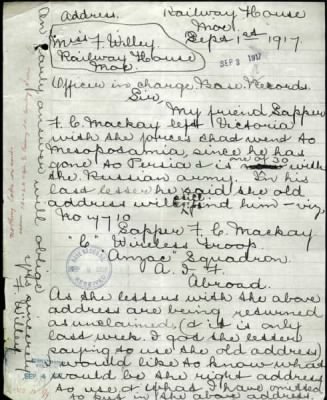 Address. Railway House
Moe.
Sept 1st 1917.
Miss F. Willey
Railway House
Moe.
SEP 3 1917
Officer in charge Base Records.
Sir,
My friend Sapper
F. C. Mackay left Victoria
with the forces that went to
Mesopotamia, since he has
gone to Persia & is one of 30 with
the Russian army. In his
last letter he said the old
address will find him – viz
No 7710
Sapper F. C. Mackay
"C" Wireless Troop.
Anzac Squadron.
A. I. F.
Abroad.
As the letters with the above
address are being returned
as unclaimed, (& it is only
last week I got the letter
saying to use the old address)
would like to know what
would be the right address
to use & what I have omitted
to put in the above address
An early answer will oblige
yrs sincerely
F. Willey